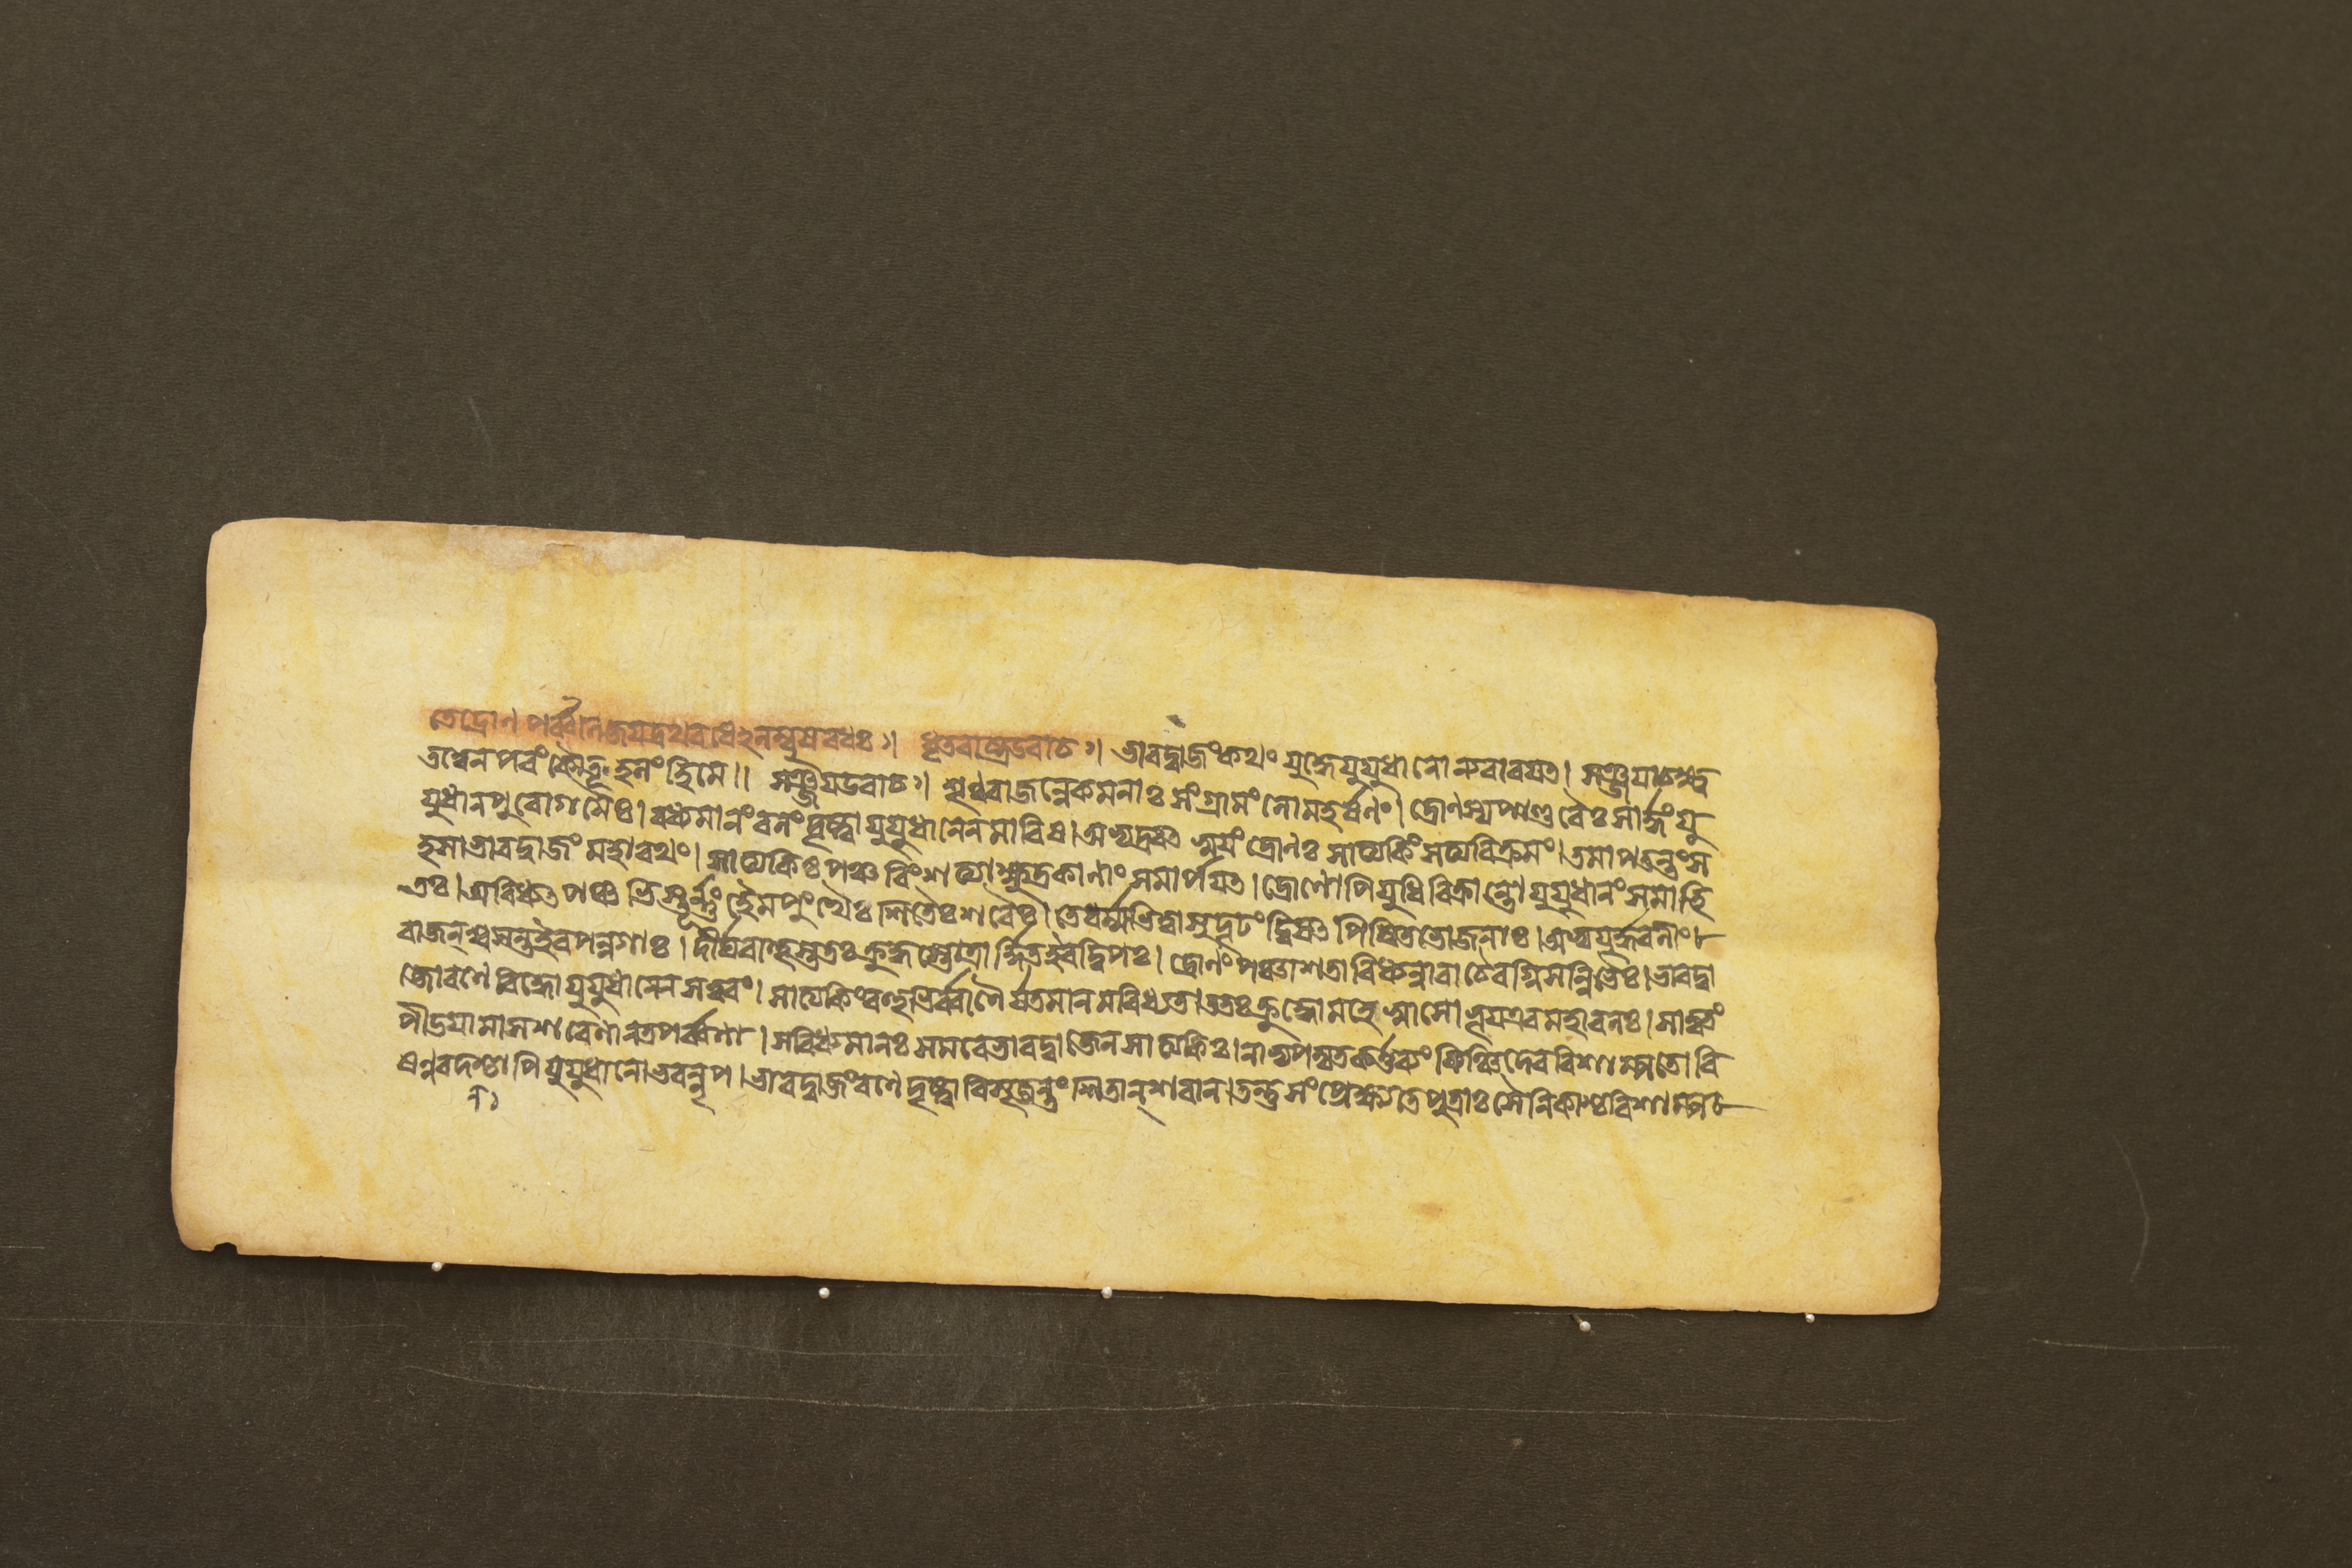 তেদ্রোণপর্ব্বানিজয়দ্রথবধেঽলম্বুষবধঃ ৷ ধৃতরাষ্ট্রউবাচ ৷ ভারদ্বাজংকথং যুদ্ধেযুযুধানোন্যবারয়ত্ । সঞ্জয়াচক্ষ্ব
তত্বেনপরংকৌতূহলংহিমে ॥ সঞ্জয়উবাচ ৷ শৃণুরাজন্নেকমনাঃ সংগ্রামংলোমহর্ষণং । দ্রোণস্যপাণ্ডবৈঃ সার্দ্ধংযু
যুধানপুরোগমৈঃ । বধ্যমানংবলংদৃষ্ট্বাযুযুধানেনমারিষ । অভ্যদ্রবত্স্বয়ংদ্রোণঃ সাত্যকিংসত্যবিক্রমং । তমাপতন্তংস
হসাভারদ্বাজংমহারথং । সাত্যকিঃ পঞ্চবিংশত্যাক্ষুদ্রকাণাংসমার্পয়ত্ । দ্রোণোপিযুধিবিক্রান্তোযুযুধানংসমাহি
তঃ । অবিধ্যত্পঞ্চভিস্তূর্ণ্ণংহেমপুংখৈঃ শিতৈঃ শরৈঃ । তেবর্ম্মভিত্বাসুদৃঢংদ্বিষত্পিশিতভোজনাঃ । অভ্যয়ুর্দ্ধরণীং
রাজন্শ্বসন্তইবপন্নগাঃ । দীর্ঘবাহুস্ততঃ ক্রুদ্ধস্তোত্রার্দ্দিতইবদ্বিপঃ । দ্রোণংপঞ্চাশতাবিধ্যন্নারাচৈরগ্নিসন্নিভৈঃ । ভারদ্বা
জোরণেবিদ্ধোযুযুধানেনসত্বরং । সাত্যকিংবহুভির্ব্বাণৈর্যতমানমবিধ্যত । ততঃ ক্রুদ্ধোমহেষ্বাসোভূয়এবমহাবলঃ । সাত্বতং
পীডয়ামাসশরেণানতপর্ব্বণা । সবিধ্যমানঃ সমরেভারদ্বাজেনসাত্যকিঃ । নাভ্যপদ্যতকর্ত্তব্যংকিঞ্চিদেববিশাম্পতেবি
ষণ্নবদনশ্চাপিযুযুধানোভবন্নৃপ । ভারদ্বাজংরণেদৃষ্ট্বাবিসৃজন্তংশিতান্শরান্ । তন্তুসংপ্রেক্ষ্যতেপুত্রাঃ সৈনিকাশ্চবিশাম্পতে